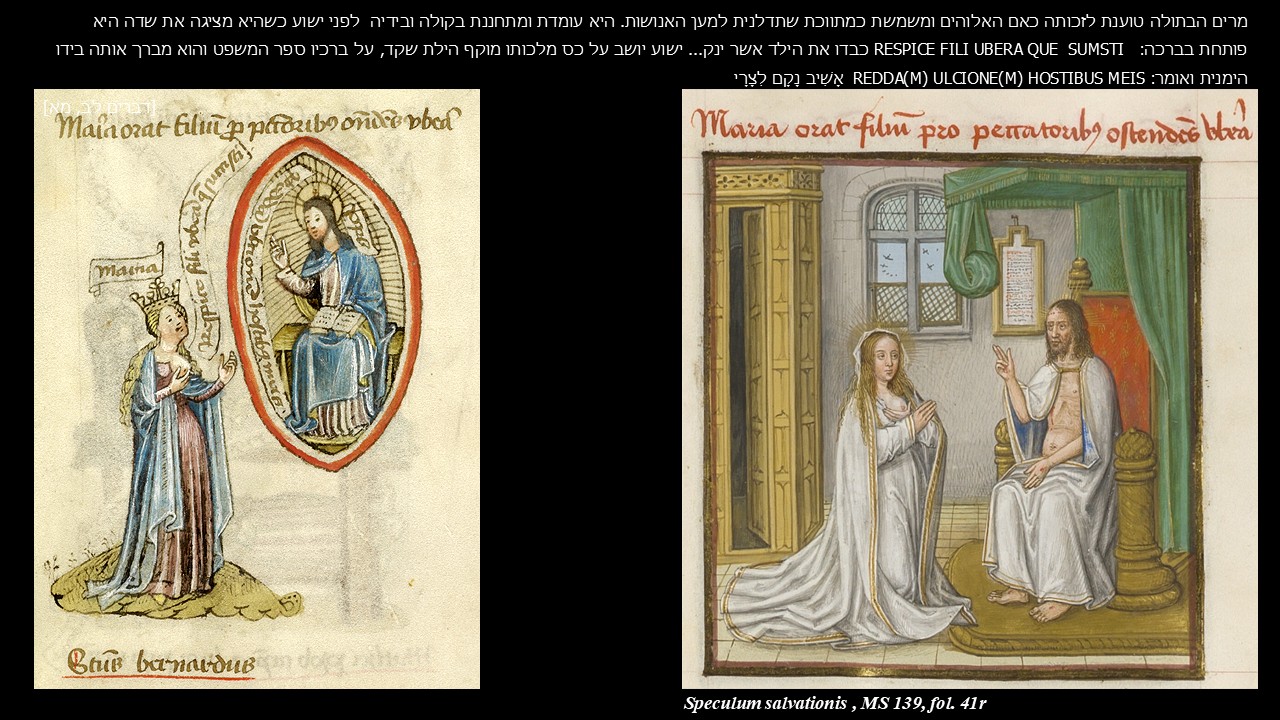 מרים הבתולה טוענת לזכותה כאם האלוהים ומשמשת כמתווכת שתדלנית למען האנושות. היא עומדת ומתחננת בקולה ובידיה לפני ישוע כשהיא מציגה את שדה היא
פותחת בברכה: RESPICE FILI UBERA QUE SUMSTI כבדו את הילד אשר ינק... ישוע יושב על כס מלכותו מוקף הילת שקד, על ברכיו ספר המשפט והוא מברך אותה בידו
הימנית ואומר: REDDA(M) ULCIONE(M) HOSTIBUS MEIS אָשִׁיב נָקָם לְצָרָי
[דברים לב, מא]
Maria orat filiū pro peccatoribꝰ ostendēs vbera
Maria
Respice fili vbera
Stūs bernardus
Maria orat filiū pro peccatoribꝰ ostendēs vbera
Speculum salvationis , MS 139, fol. 41r